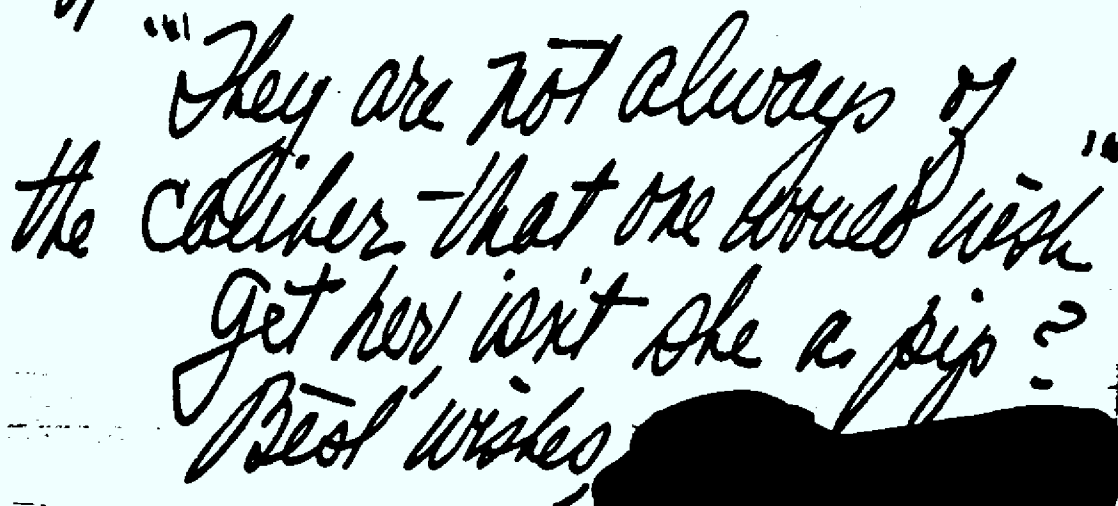 """They are not always of
the caliber that one would wish"""
Get her, isn't she a pip?
Best wishes,